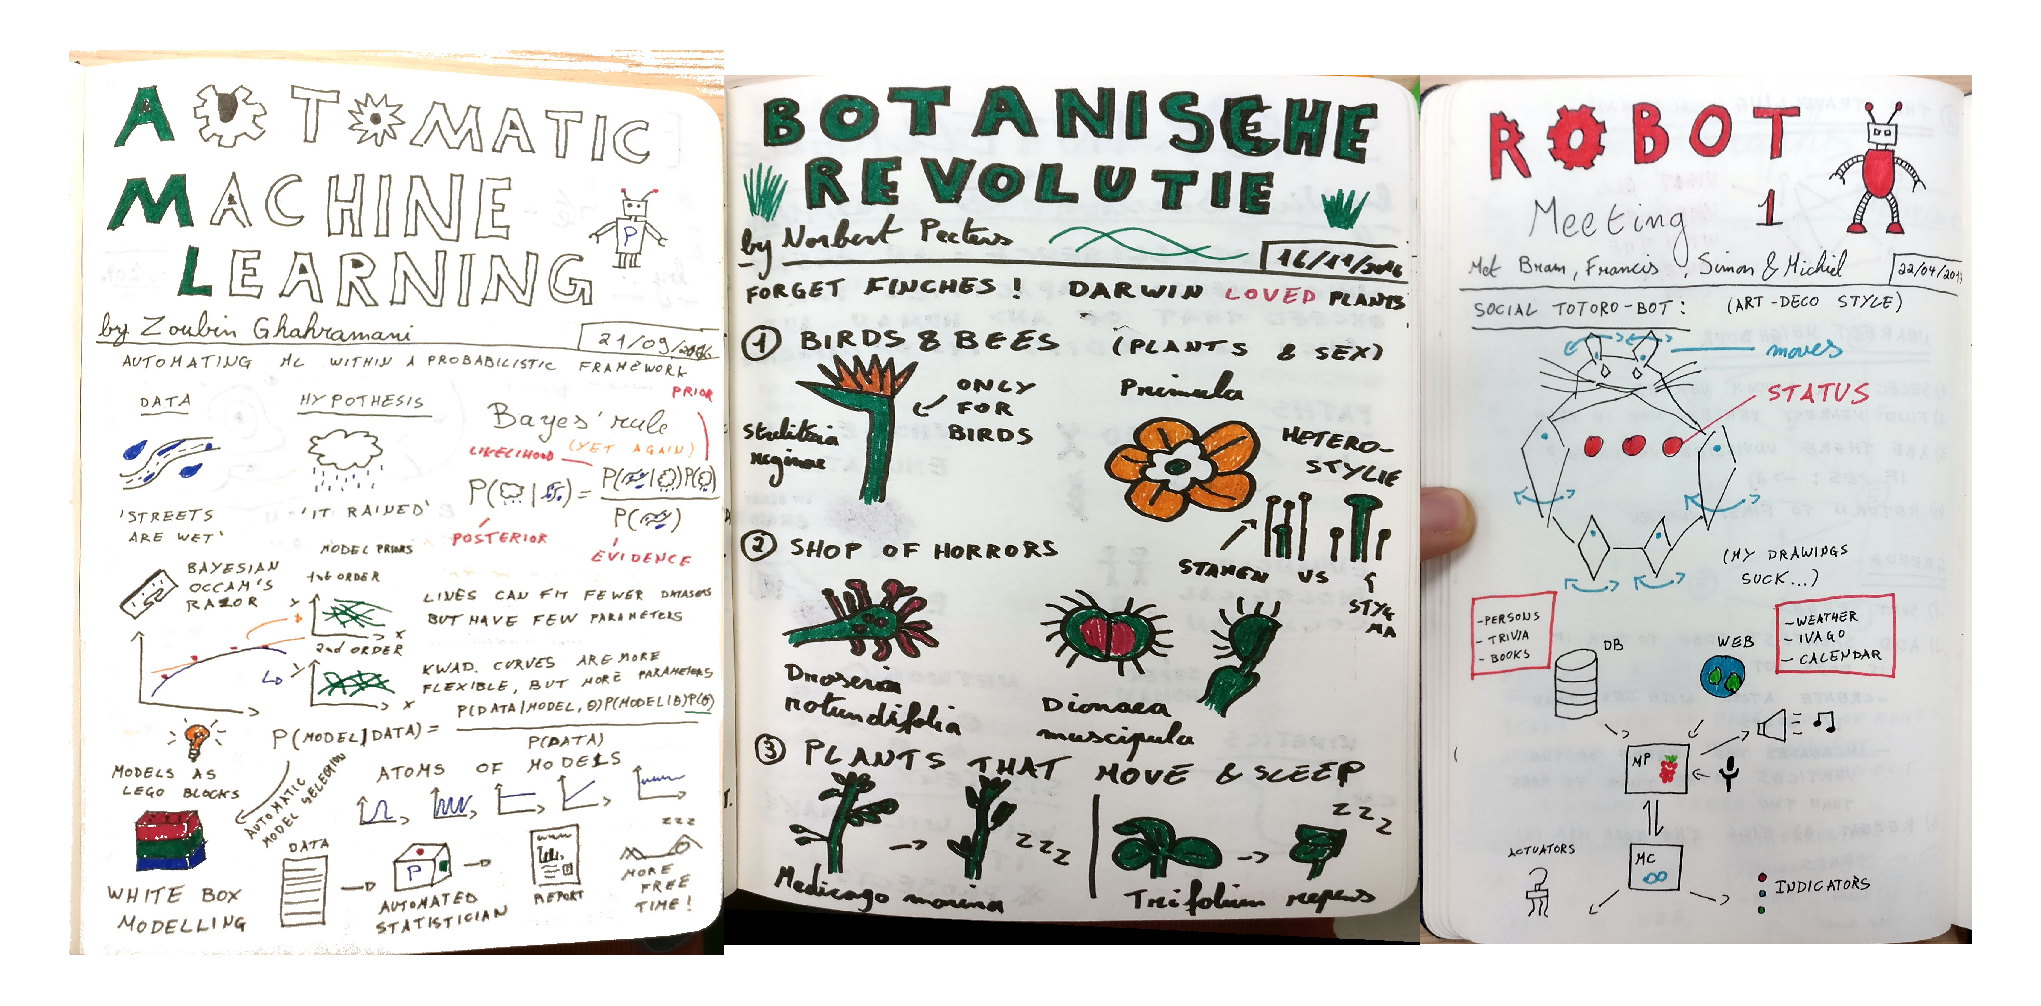 AUTOMATIC
MACHINE
LEARNING
P
by Zoubin Ghahramani
21/09/2016
AUTOMATING ML WITHIN A PROBABILISTIC FRAMEWORK
DATA
HYPOTHESIS
Bayes' rule
(YET AGAIN)
PRIOR
LIKELIHOOD
P( | ) = P( | )P( )
P( )
POSTERIOR
EVIDENCE
'STREETS
ARE WET'
'IT RAINED'
BAYESIAN
OCCAM'S
RAZOR
MODEL PRIORS
1st ORDER
Y
X
2nd ORDER
Y
X
LINES CAN FIT FEWER DATASETS
BUT HAVE FEW PARAMETERS
KWAD. CURVES ARE MORE
FLEXIBLE, BUT MORE PARAMETERS
P(MODEL|DATA) = P(DATA|MODEL, θ)P(MODEL|θ)P(θ)
P(DATA)
MODELS AS
LEGO BLOCKS
AUTOMATIC
MODEL SELECTION
ATOMS OF MODELS
WHITE BOX
MODELLING
DATA
P
AUTOMATED
STATISTICIAN
REPORT
zzz
MORE
FREE
TIME!
BOTANISCHE
REVOLUTIE
by Norbert Peeters
16/11/2016
FORGET FINCHES! DARWIN LOVED PLANTS
1 BIRDS & BEES (PLANTS & SEX)
Strelitzia
reginae
ONLY
FOR
BIRDS
Primula
HETERO-
STYLIE
STAMEN VS
STYG
MA
2 SHOP OF HORRORS
Droseria
rotundifolia
Dionaea
muscipula
3 PLANTS THAT MOVE & SLEEP
ZZZ
Medicago marina
ZZZ
Trifolium repens
ROBOT
Meeting 1
Met Bram, Francis, Simon & Michiel
22/04/201
SOCIAL TOTORO-BOT: (ART-DECO STYLE)
moves
STATUS
(MY DRAWINGS
SUCK...)
- PERSONS
- TRIVIA
- BOOKS
DB
WEB
- WEATHER
- IVAGO
- CALENDAR
MP
MC
ACTUATORS
INDICATORS